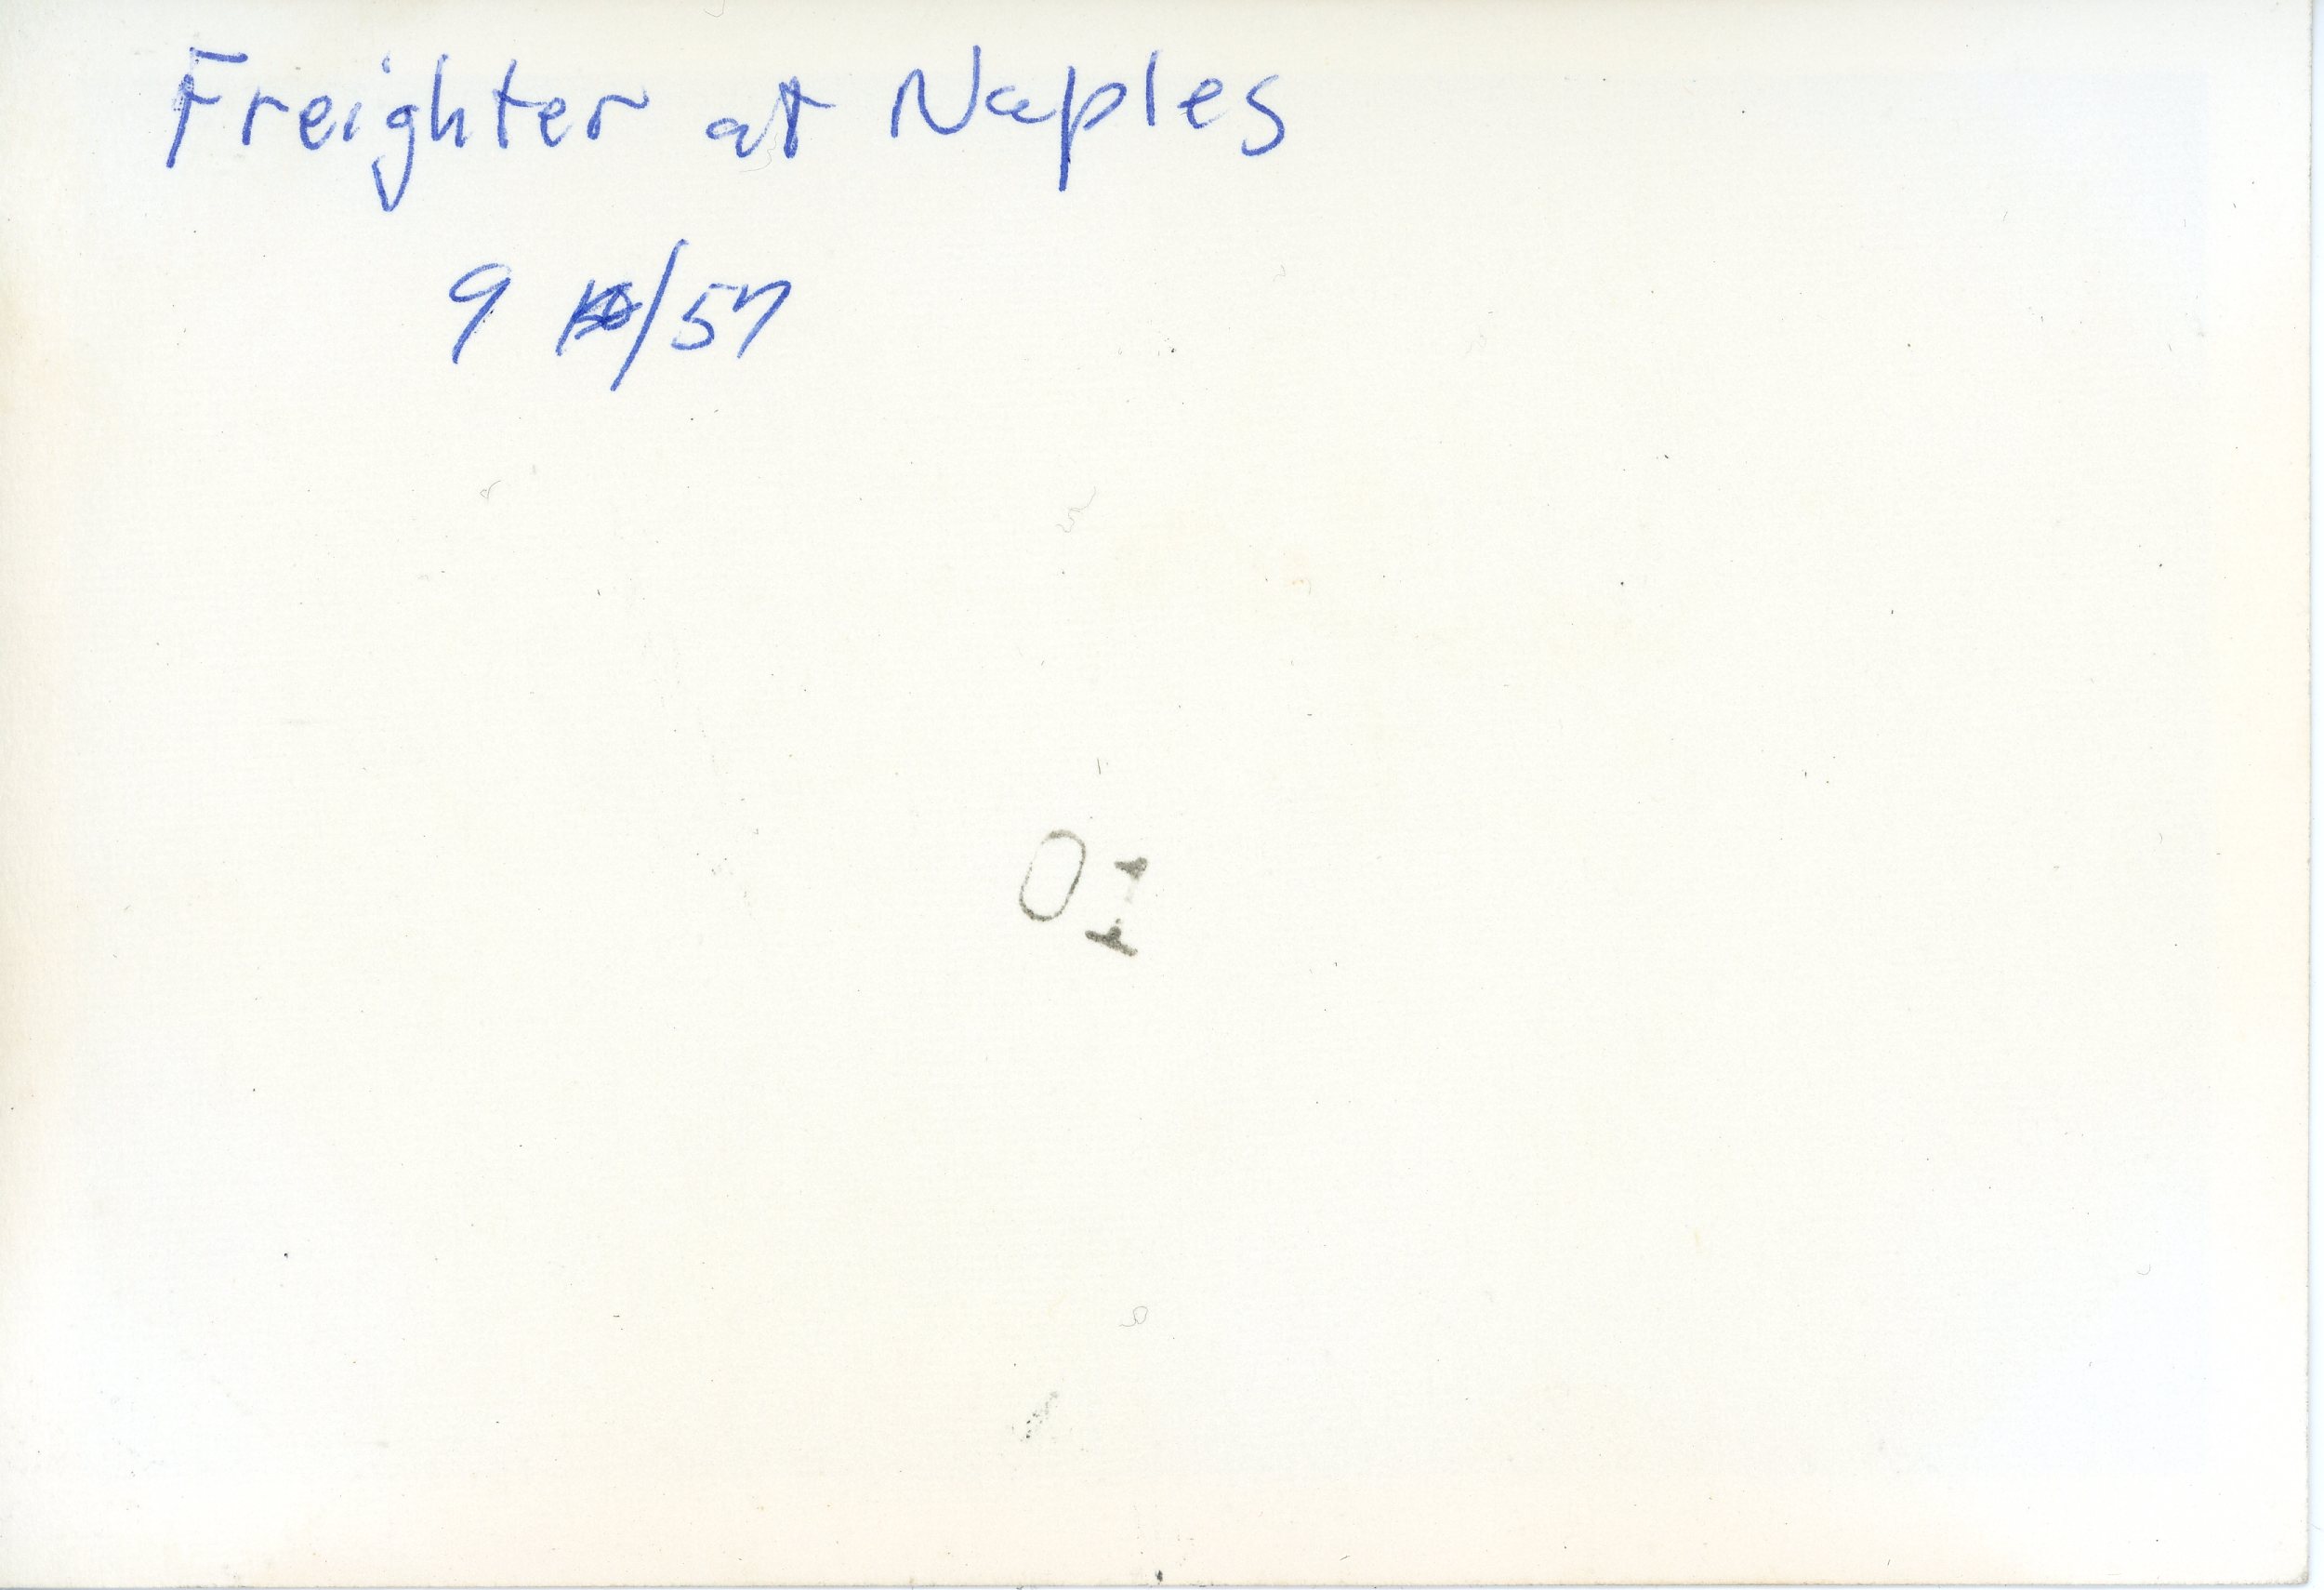 Freighter at Naples
9 /57
01